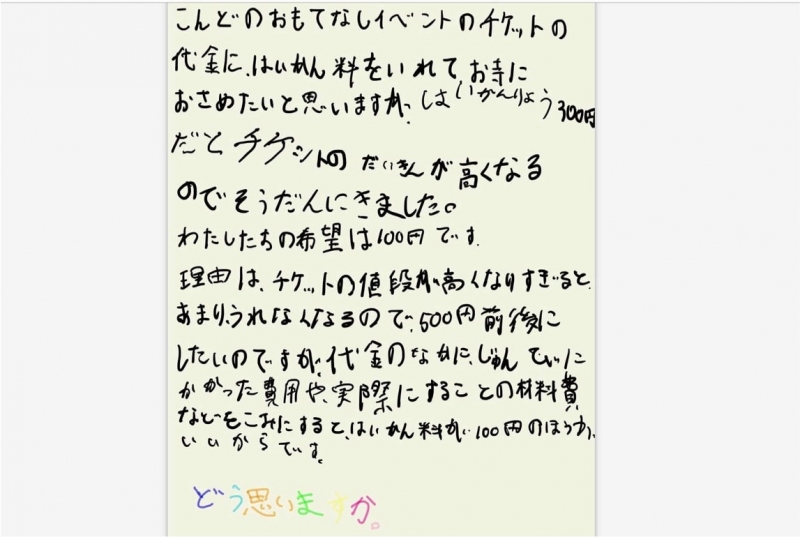 こんどのおもてなしイベントのチケットの
代金に、はいかん料をいれて、お寺に
おさめたいと思いますが、はいかんりょう300円
だとチケットのだいきんが高くなる
のでそうだんにきました。
わたしたちの希望は100円です。
理由は、チケットの値段が高くなりすぎると、
あまりうれなくなるので、500円前後に
したいのですが、代金のなかに、じゅんびに
かかった費用や、実際にすることの材料費
などをこみにすると、はいかん料が、100円のほうが、
いいからです。
どう思いますか。